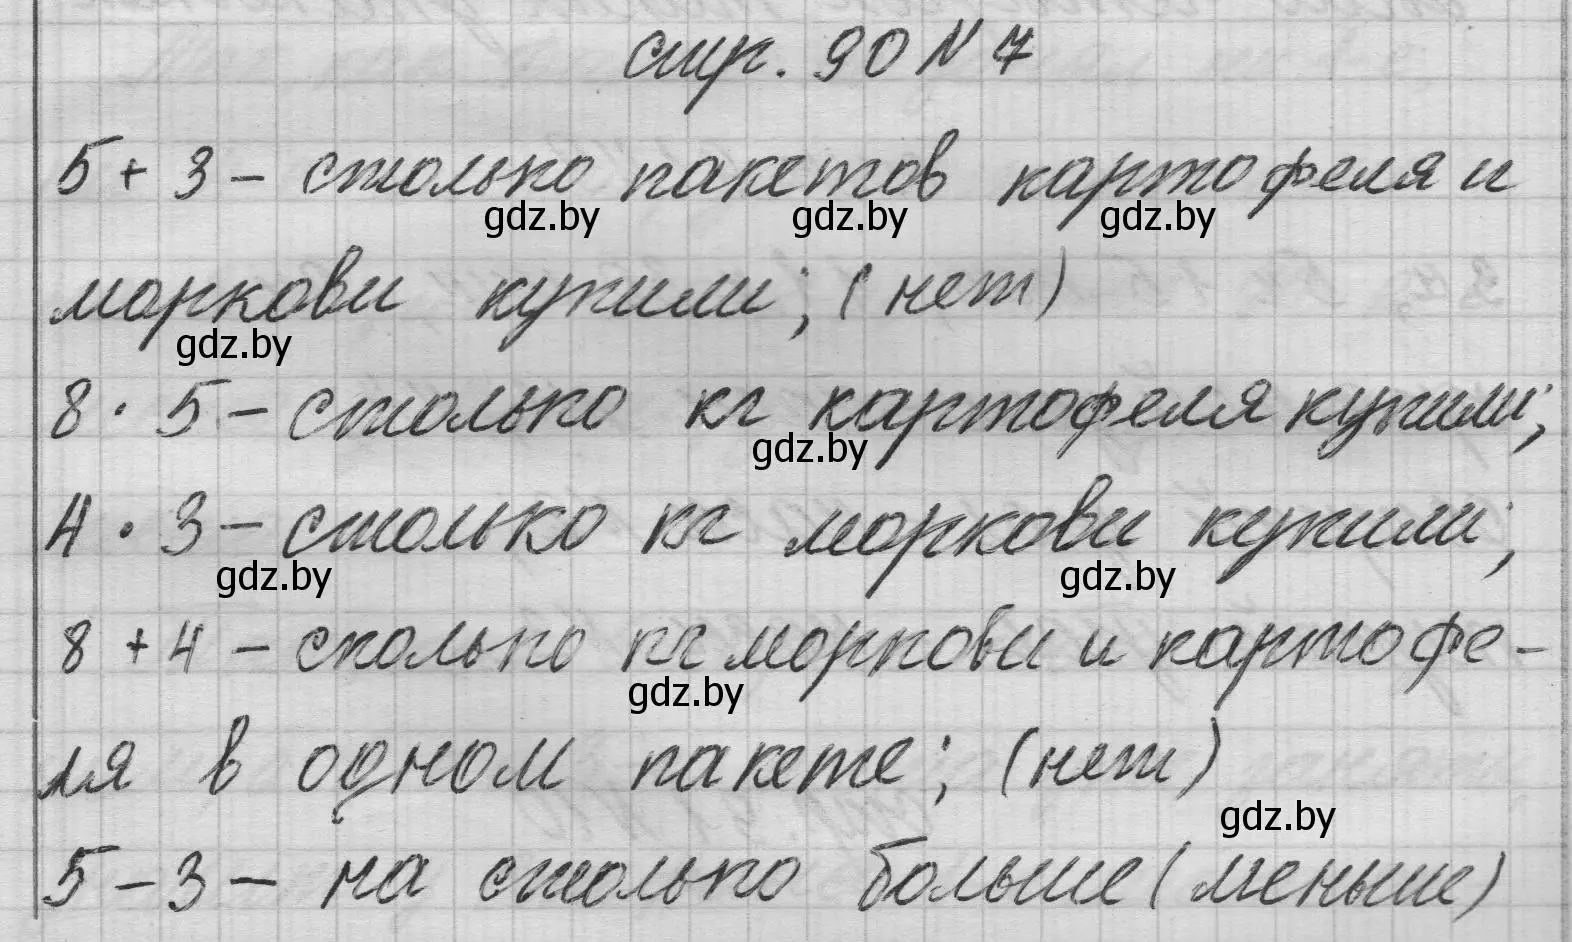 стр. 90 N 7
5 + 3 - столько пакетов картофеля и
gdz.by gdz.by gdz.by
моркови купили; (нет)
gdz.by
8 · 5 - столько кг картофеля купили;
gdz.by
4 · 3 - столько кг моркови купили;
gdz.by gdz.by
8 + 4 - сколько кг моркови и картофе-
gdz.by
ля в одном пакете; (нет)
gdz.by
5 - 3 - на столько больше (меньше)